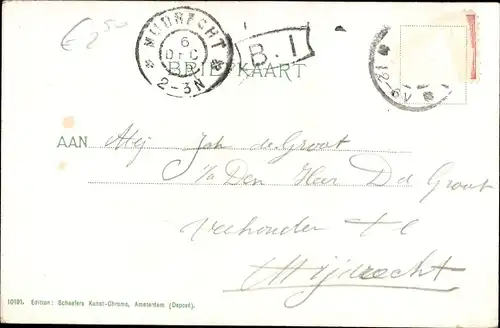 € 2,50
MIJDRECHT
6
DEC
2-3N
B.1
12-6V
BRIEFKAART
AAN Mej Joh de Groot
P/a Den Heer De Groot
Veehouder te
Mijdrecht
10191. Edition: Schaefers Kunst-Chromo, Amsterdam (Deposé).